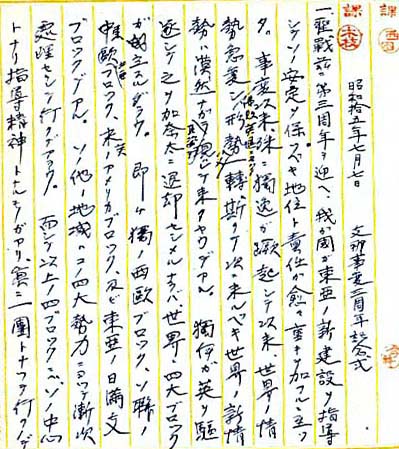 課
課
昭和拾五年七月七日 支那事変三周年記念式
一、聖戦茲ニ第三周年ヲ迎ヘ、我ガ国ガ東亜ノ新建設ヲ指導
シテソノ安定ヲ保ツベキ地位ト責任ガ愈々重キヲ加フルニ至ッ
タ。事変以来殊ニ独逸ガ蹶起シテ以来、世界ノ情
勢急変シ形勢転 斯クテ次ニ来ルベキ世界ノ新情
勢ハ漠然ナガラ現レテ来タヤウデアル。独伊ガ英ヲ駆
逐シテ之ヲ加奈太ニ退却セシメルナラバ世界ハ四大ブロック
ガ成立スルダラウ。即チ独ノ西欧ブロック、ソ聯ノ
東欧ブロック、米ノアメリカブロック、及ビ東亜ノ日満支
ブロックデアル。ソノ他ノ地域ハコノ四大勢力ニヨッテ漸次
処理セラレテ行クデアラウ。而シテ以上ノ四ブロックハ、ソノ中心
トナリ指導精神トナルモノガアリ、 一團トナッテ行クデ